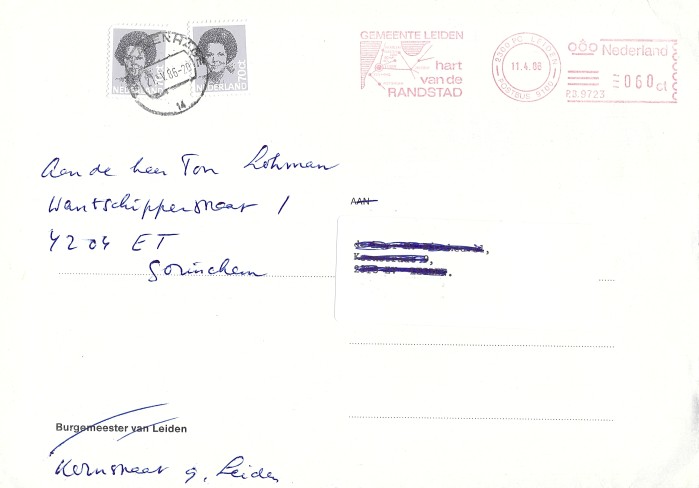 NEDERLAND
70ct
NEDERLAND
14
GEMEENTE LEIDEN
hart
van de
RANDSTAD
2300 PC LEIDEN
POSTBUS 9100
11.4.86
Nederland
060 ct
P.B.9723
Aan de heer Ton Lohman
Wantschipperstraat 1
4204 ET
Gorinchem
AAN
Burgemeester van Leiden
Kernstraat 9, Leiden